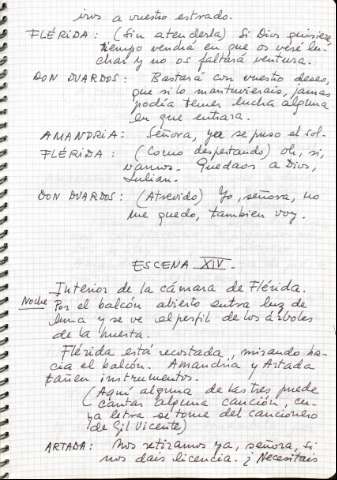 iros a vuestro estrado.
FLÉRIDA: (Sin atenderla) Si Dios quisiere
tiempo vendrá en que os veré lu-
char y no os faltará ventura.
DON DUARDOS: Bastará con vuestro deseo,
que si lo mantuvierais, jamás
podía temer lucha alguna
en que entrara.
AMANDRIA: Señora, ya se puso el sol.
FLÉRIDA: (Como despertando) Oh, sí,
vamos. Quedaos a Dios,
Julián.
DON DUARDOS: (Atrevido) Yo, señora, no
me quedo, tambien voy.
ESCENA XIV.
Interior de la cámara de Flérida.
Noche Por el balcón abierto entra luz de
luna y se ve el perfil de los árboles
de la huerta.
Flérida está recostada, mirando ha-
cia el balcón. Amandria y Artada
tañen instrumentos.
(Aquí alguna de las tres puede
cantar alguna canción, cu-
ya letra se tome del cancionero
de Gil Vicente)
ARTADA: Nos retiramos ya, señora, si
nos dais licencia. ¿Necesitais